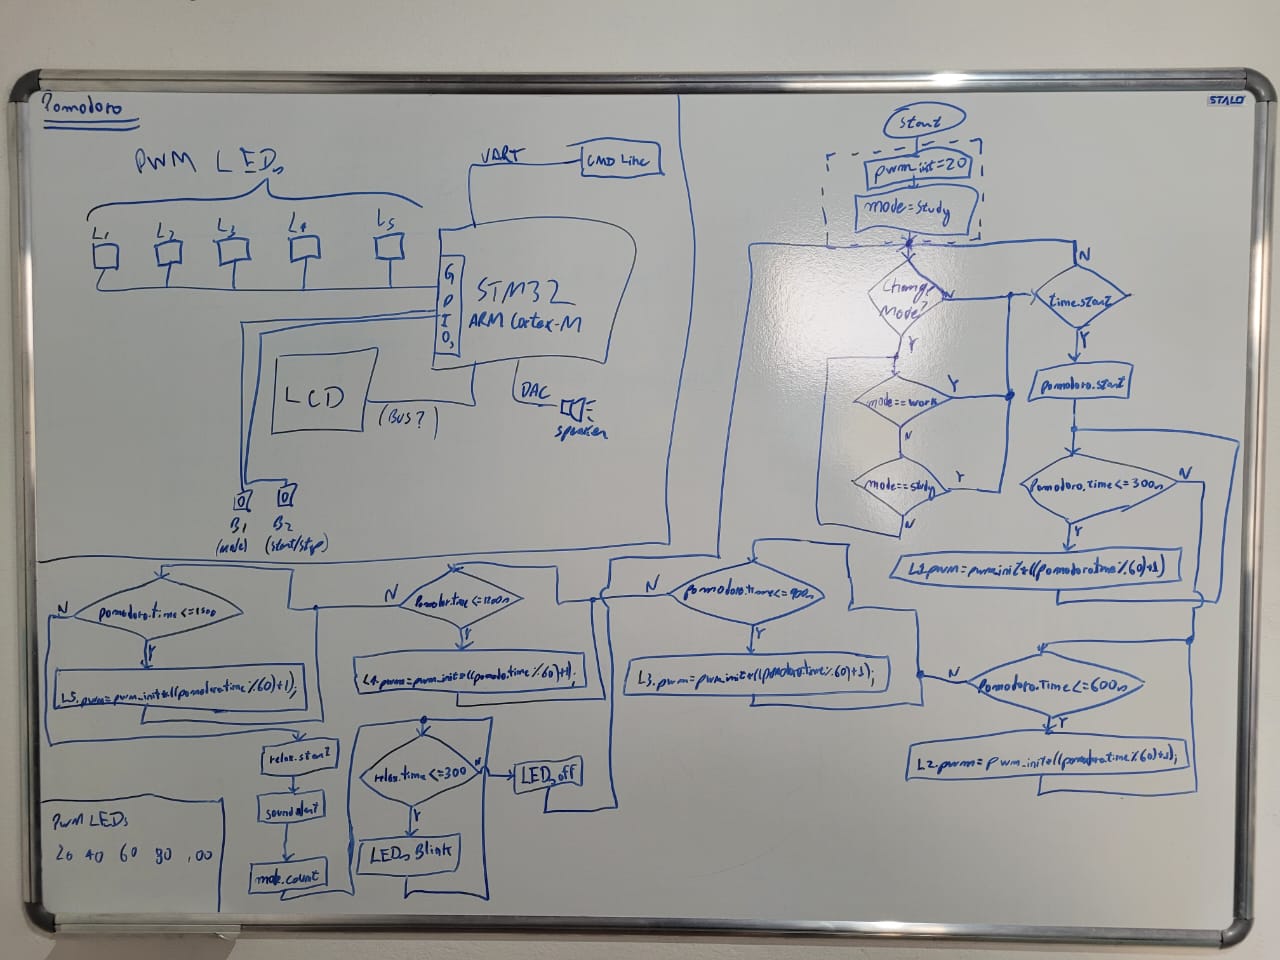 Pomodoro
STALO
PWM LEDs
L1 L2 L3 L4 L5
UART
CMD Line
GPIOs
STM32
ARM Cortex-M
LCD
(BUS?)
DAC
speaker
B1
(mode)
B2
(start/stop)
start
pwm_init=20
mode=study
Change
Mode?
N
Y
mode==work
Y
N
mode==study
Y
N
time.start
N
Y
pomodoro.start
Pomodoro.time<=300s
N
Y
L1.pwm=pwm_init*((pomodoro.time%60)+1)
Pomodoro.Time<=600s
N
Y
L2.pwm=pwm_init*((pomodoro.time%60)+1);
pomodoro.time<=900s
N
Y
L3.pwm=pwm_init*((pomodoro.time%60)+1);
Pomodor.time<=1200s
N
Y
L4.pwm=pwm_init*((pomodo.time%60)+1);
pomodoro.time<=1500
N
Y
L5.pwm=pwm_init*((pomodoro.time%60)+1);
relax.start
sound alert
mode.count
relax.time<=300
N
Y
LEDs off
LEDs Blink
PWM LEDs
20 40 60 80 100